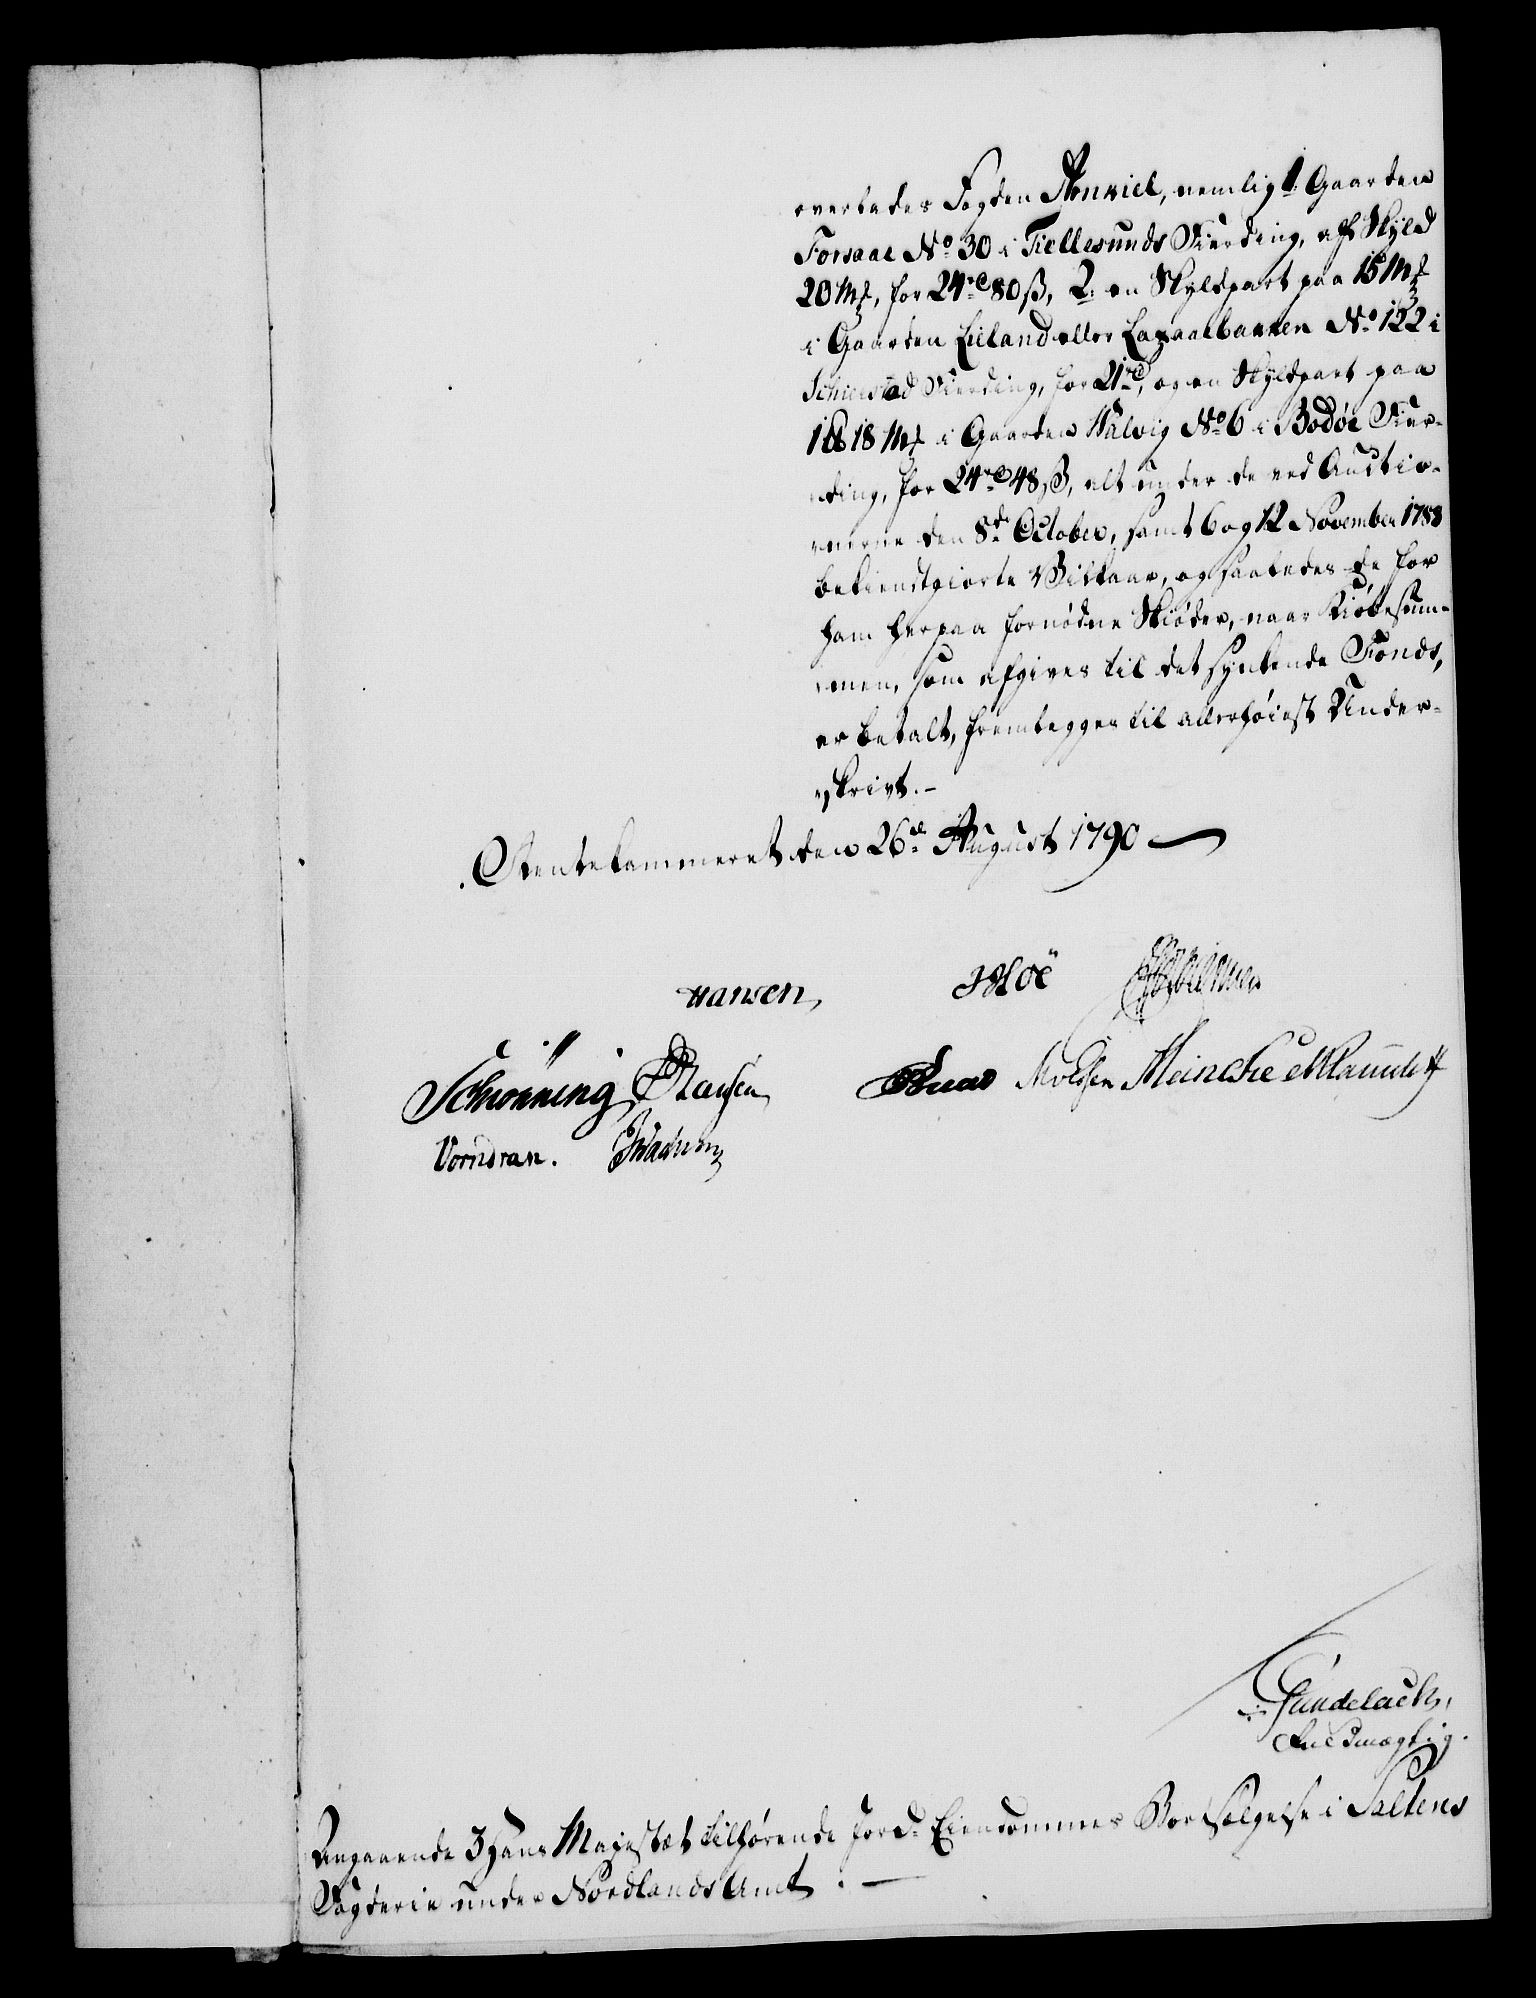 overlades Fogden Stonviel, nemlig 1: Gaarden
Forsaae No. 30 i Tiellesunds Fierding, af Skyld
20 Mk, for 24 rd 80 ß, 2: en Skyldpart paa 15 Mk
i Gaarden Lieland eller Laxaaebacken No. 122 i
Schierstad Fierding, for 21 rd, og en Skyldpart paa
1 ℔ 18 Mk i Gaarden Walvig No. 6 i Bodøe Fier-
ding, for 24 rd 48 ß, alt under de ved Auctio-
nerne den 8de October, samt 6 og 12 November 1788
bekiendtgiorte Vilkaar, og saaledes de for
ham herpaa fornødne Skiøder, naar Kiøbesum-
men, som afgives til det synkende Fonds,
er betalt, fremlegges til allerhøiest Under-
skrivt. –
Rentekammeret den 26de August 1790 —
Hansen, Hoë
Schønning Hansen Meincke
Vorndran.
Gundelach,
Fuldmægtig.
Angaaende 3 Hans Majestæt tilhørende Jord-Eiendommes Bortsælgelse i Saltens
Fogderie under Nordlands Amt. —